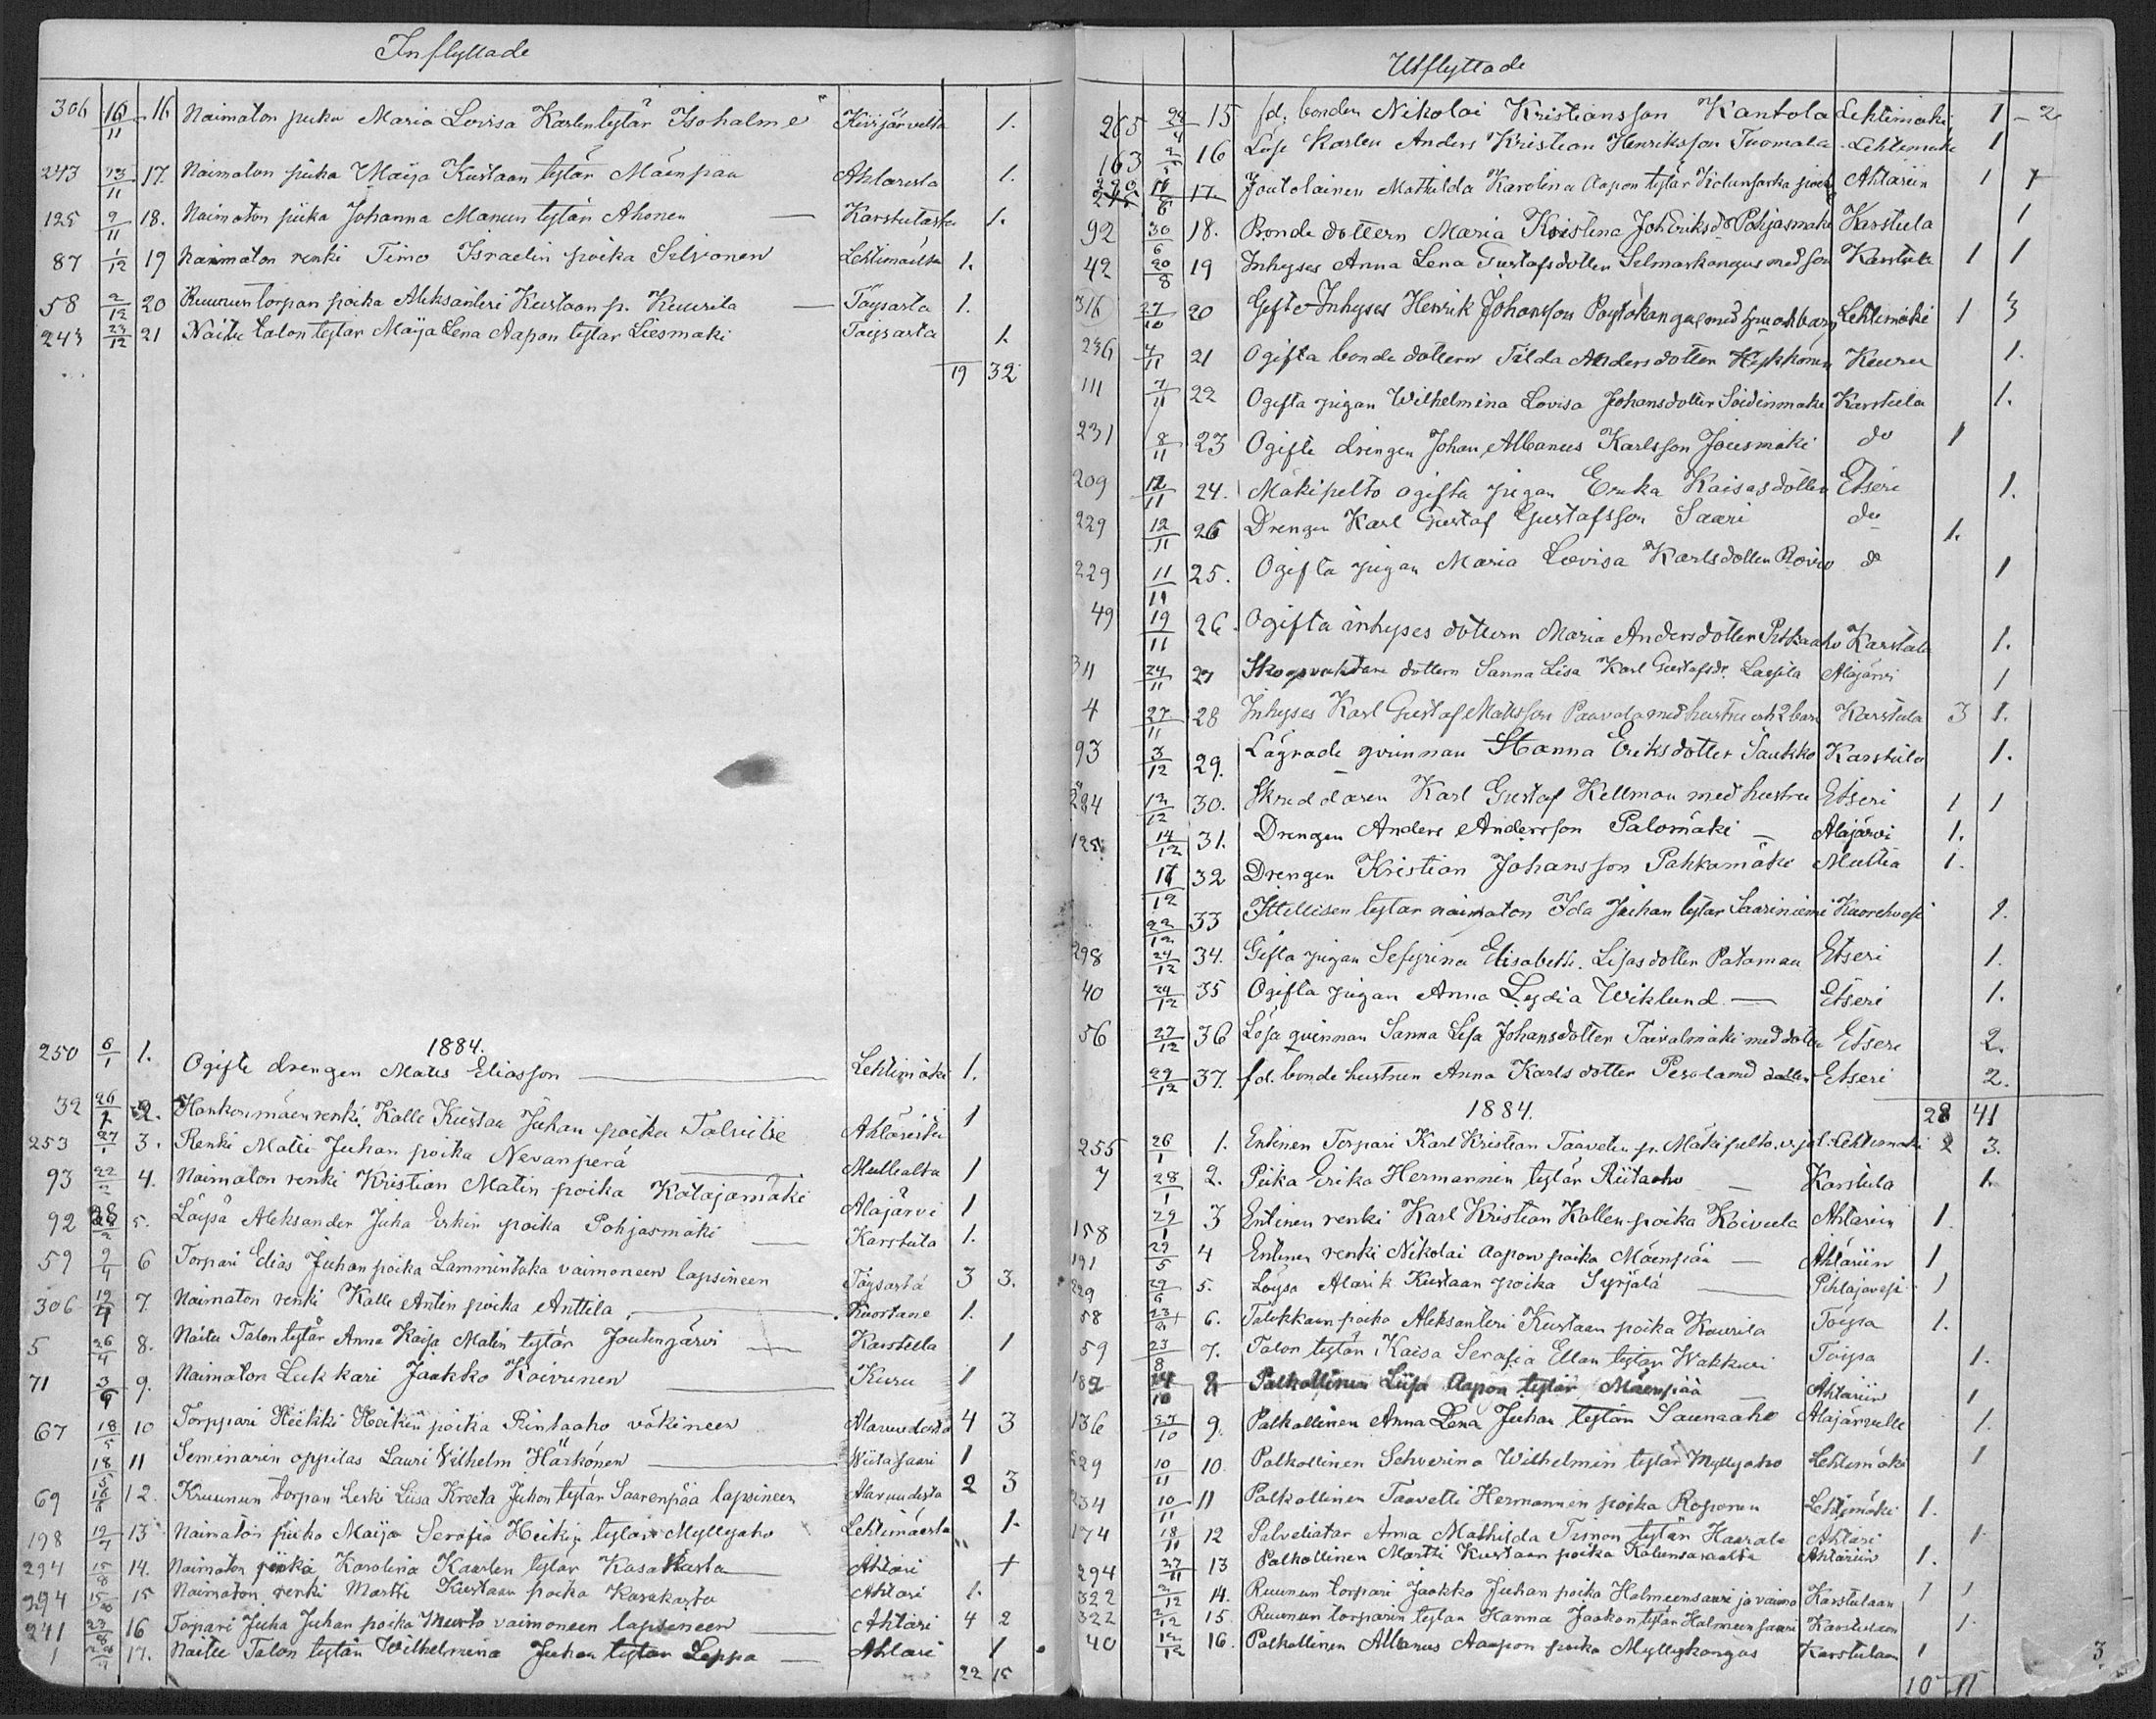 Inflyttade
306 16/11 16 Naimaton piika Maria Lovisa Karlentytär Isoholm Kivijärvelta 1.
243 23/11 17. Naimaton piika Maija Kustaan tytär Mäenpää Ahtaresta 1.
125 9/11 18. Naimaton piika Johanna Manuun tytär Ahonen — Karstulasta 1.
87 1/12 19 Naimaton renki Timo Israelin poika Silvonen Lehtimäeltä 1.
58 2/12 20 Ruunun torpan poika Aleksanteri Kustaan p. Kuurila — Töysästä 1.
243 23/12 21 Naitu talon tytar Maija Lena Aapon tytar Liesmaki Toysasta 1.
19 32
1884.
250 6/1 1. Ogifte drengen Matts Eliasson — Lehtimäki 1.
32 26/1 2. Honkonmäen renki Kalle Kustaa Juhan poika Talvitie Ahtäristä 1
253 27/1 3. Renki Matti Juhan poika Nevanperä — Multialta 1
93 22/2 4. Naimaton renki Kristian Matin poika Katajamäki Alajärvi 1
92 28/2 5. Löysä Aleksander Juha Erkin poika Pohjasmäki — Karstula 1.
59 9/4 6 Torpari Elias Juhan poika Lammintaka vaimoneen lapsineen Töysästä 3 3.
306 19/4 7. Naimaton renki Kalle Antin poika Anttila — Kuortane 1.
5 26/4 8. Naitu Talon tytär Anna Kaisa Matin tytär Joutenjärvi — Karstula 1
71 3/9 9. Naimaton Lukkari Jaakko Koivunen — Kuru 1
67 18/5 10 Torppari Heikki Heikin poika Rintaaho väkineen Alavuudesta 4 3
18/5 11 Seminarin oppilas Lauri Vilhelm Härkönen — Wiitasaari 1
69 16/6 12. Kruunun torpan Leski Liisa Kreeta Juhon tytär Saarenpää lapsineen Alavuudesta 2 3
198 12/7 13 Naimaton piika Maija Serafia Heikin tytär Myllyaho Lehtimäestä 1.
294 15/8 14. Naimaton piika Karolina Kaarlen tytar Kasakasta — Ahtäri 1
294 15/8 15 Naimaton renki Martti Kustaan poika Kasakasta Ahtäri 1.
241 23/ 16 Torpari Juha Juhan poika Murto vaimoneen lapsineen — Ahtäri 4 2
1 17. Naitu Talon tytär Wilhelmina Juhan tytar Leppa — Ahtäri 1
22 15
Utflyttade
265 22/4 15 fd. bonden Nikolai Kristiansson Kantola Lehtimäki 1 – 2
163 2/5 16 Löse karlen Anders Kristian Henriksson Tuomala Lehtimäki 1
17. Joutolainen Mathilda Karolina Aapon tytär Ahtäriin 1 1
92 30/6 18. Bonde dottern Maria Kristina Joh Eriksd Pohjasmäki Karstula 1
42 20/8 19 Inhyses Anna Lena Gustafsdotter Selmaskangas med son Karstula 1 1
316 27/10 20 Gifte Inhyses Henrik Johansson Poytakangas med hustru och barn Lehtimäki 1 3
236 4/11 21 Ogifta bonde dottern Tilda Andersdotter Keuru 1.
111 7/11 22 Ogifta pigan Wilhelmina Lovisa Johansdotter Soidinmäki Karstula 1.
231 8/11 23 Ogifte drengen Johan Albanus Karlsson Jousmäki do 1
209 12/11 24. Mäkipelto ogifta pigan Erika Kaisasdotter Etseri 1.
229 12/11 26 Drengen Karl Gustaf Gustafsson Saari do 1.
229 11/11 25. Ogifta pigan Maria Lovisa Karlsdotter Roivio do 1
49 19/11 26. Ogifta inhyses dottern Maria Andersdotter Pitkäaho Karstula 1.
311 24/11 27 Skogvaktare dottern Sanna Lisa Karl Gustafsdr. Lassila Alajärvi 1
4 27/11 28 Inhyses Karl Gustaf Mattsson Paavola med hustru och 2 barn Karstula 3 1.
93 3/12 29. Lägrade qvinnan Hanna Eriksdotter Saukko Karstula 1.
284 12/12 30. Skreddaren Karl Gustaf Kellman med hustru Etseri 1 1
125 14/12 31. Drengen Anders Andersson Palomäki — Alajärvi 1.
17/12 32 Drengen Kristian Johansson Pahkamäki Multia 1.
22/12 33 Itellisen tytar naimaton Ida Juhan tytar Saariniemi Kuorehvesi 1.
298 24/12 34. Gifta pigan Sefyrina Elisabeth. Lisasdotter Pataman Etseri 1.
40 24/12 35 Ogifta pigan Anna Lydia Wiklund — Etseri 1.
56 27/12 36 Lösa qvinnan Sanna Lisa Johansdotter Taivalmäki med dotter Etseri 2.
29/12 37. fd. bonde hustrun Anna Karlsdotter Pesola med dotter Etseri 2.
28 41
1884.
255 26/1 1. Entinen Torpari Karl Kristian Taavetin p. Mäkipelto Lehtimäki 2 3.
7 28/1 2. Piika Erika Hermannin tytär Riitaaho — Karstula 1.
158 29/1 3 Entinen renki Karl Kristian Kallen poika Koivula Ahtäriin 1.
191 29/5 4 Entinen renki Nikolai Aapon poika Mäenpää — Ahtäriin 1
229 29/6 5. Löysä Alarik Kustaan poika Syrjälä — Pihlajavesi 1
58 23/8 6. Talokkaan poika Aleksanteri Kustaan poika Kuurila Töysä 1.
59 23/8 7. Talon tytär Kaisa Serafia Ellan tytar Wakkuri Töysä 1.
182 24/10 8 Palkollinen Liisa Aapon tytär Mäenpää — Ahtäriin 1
136 27/10 9. Palkollinen Anna Lena Juhan tytär Saunaaho Alajärvelle 1.
229 10/11 10. Palkollinen Sehverina Wilhelmin tytär Myllyaho Lehtimäki 1
234 10/11 11 Palkollinen Taavetti Hermannin poika Roponen Lehtimäki 1.
174 18/11 12 Palveliatar Anna Mathilda Timon tytär Haarala Ahtäri 1.
294 27/11 13 Palkollinen Martti Kustaan poika Ahtäriin 1.
322 2/12 14. Ruunun torpari Jaakko Juhan poika Halmeensaari ja vaimo Karstulaan 1 1
322 2/12 15. Ruunun torparin tytar Hanna Jaakon tytär Halmeensaari Karstulaan 1.
40 12/12 16. Palkollinen Albanus Aapon poika Myllykangas Karstulaan 1
10 11
3